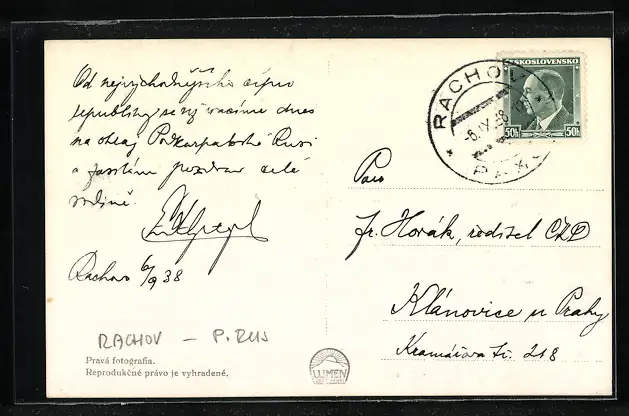 Od nejvýchodnějšího cípu
republiky se vracíme dnes
na obey Podkarpatské Rusi
a posílám pozdrav celé
rodině.
Rachov 6/9 38
RACHOV — P. RUS
Pravá fotografia.
Reprodukčné právo je vyhradené.
LUMEN
ČESKOSLOVENSKO
50h 50h
RACHOV
-6.IX.38
Pan
fr. Horák, ředitel ČKD
Klánovice u Prahy
Kramářova tř. 218